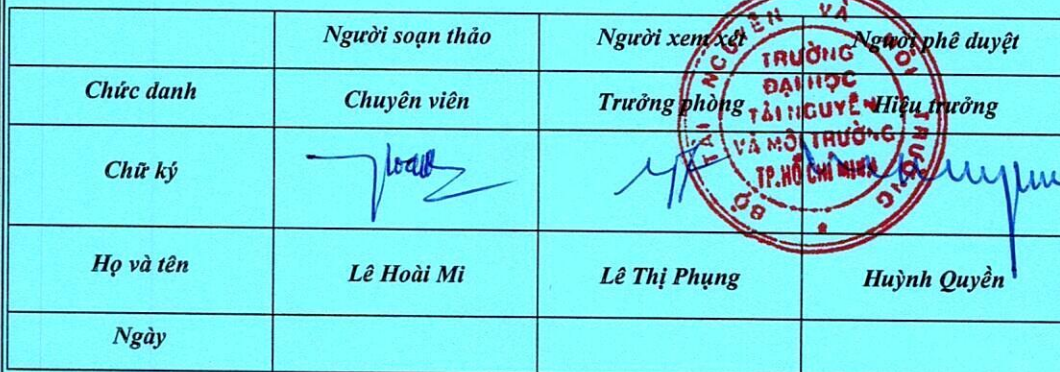 Người soạn thảo Người xem xét Người phê duyệt
Chức danh Chuyên viên Trưởng phòng Hiệu trưởng
Chữ ký
Họ và tên Lê Hoài Mi Lê Thị Phụng Huỳnh Quyền
Ngày
BỘ TÀI NGUYÊN VÀ MÔI TRƯỜNG
TRƯỜNG
ĐẠI HỌC
TÀI NGUYÊN
VÀ MÔI TRƯỜNG
TP.HỒ CHÍ MINH